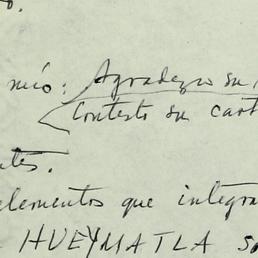 o.
mío: Agradezco su
Contesto su cart
ntes.
elementos que integra
HUEYMATLA so